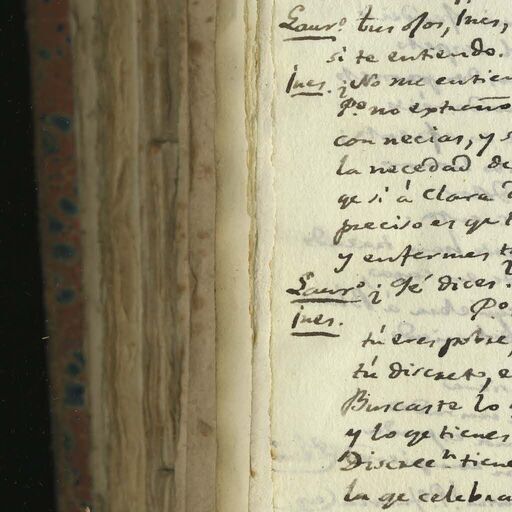 Laur.º tus ojos, Ines,
si te entiendo.
Ines. ¿No me entien
P.º no extraño
con necias, y s
la necedad de
qe si á Clara d
preciso es qe t
y enfermes t
Laur.º ¿Qé dices.
Ines. Pº
tú eres pobre,
tú discreto, e
Buscaste lo q
y lo qe tienes
Discrecn tiene
la qe celebra